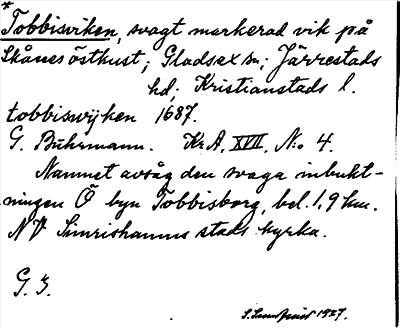 *
Tobbisviken, svagt markerad vik på
Skånes östkust; Gladsax sn; Järrestads
hd; Kristianstads l.
tobbiswijken 1687.
G. Buhrmann. KrA, XVII, N:o 4.
Namnet avsåg den svaga inbukt-
ningen Ö byn Tobbisborg, bel. 1,9 km.
NV Simrishamns stads kyrka.
G. I.
1927.